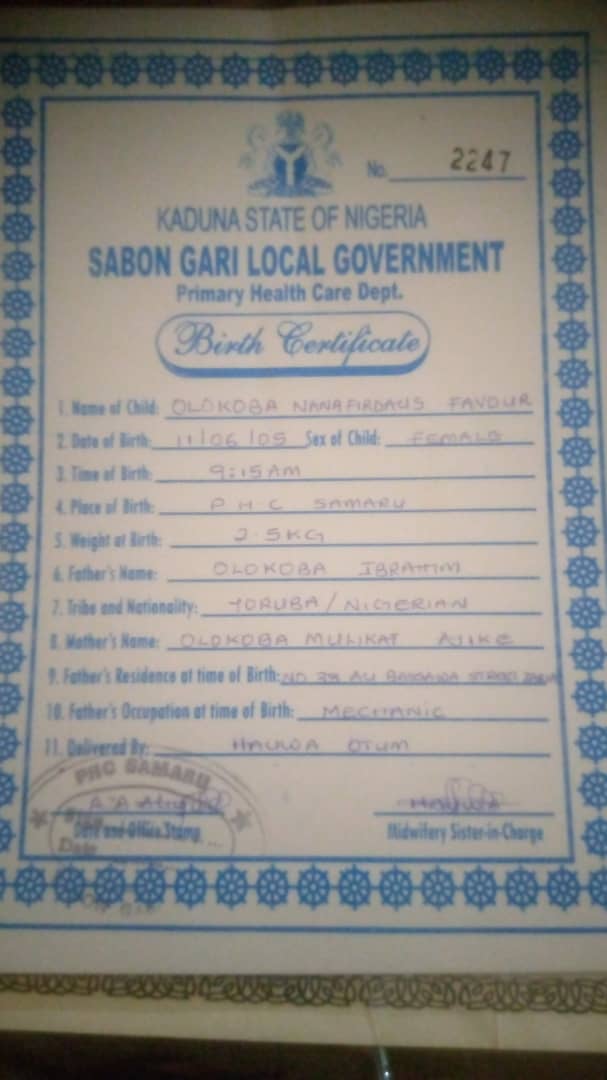 No. 2247
KADUNA STATE OF NIGERIA
SABON GARI LOCAL GOVERNMENT
Primary Health Care Dept.
Birth Certificate
1. Name of Child: OLOKOBA NANAFIRDAUS FAVOUR
2. Date of Birth: 11/06/05 Sex of Child: FEMALE
3. Time of Birth: 9:15AM
4. Place of Birth: P H C SAMARU
5. Weight at Birth: 2.5KG
6. Father's Name: OLOKOBA IBRAHIM
7. Tribe and Nationality: YORUBA/NIGERIAN
8. Mother's Name: OLOKOBA MULIKAT AJIKE
9. Father's Residence at time of Birth: NO ALI STREET ZARIA
10. Father's Occupation at time of Birth: MECHANIC
11. Delivered By: HAUWA OTUM
PHC SAMARU
A.A HAUWA
Date and Office Stamp Midwifery Sister-in-Charge
Sign
Date